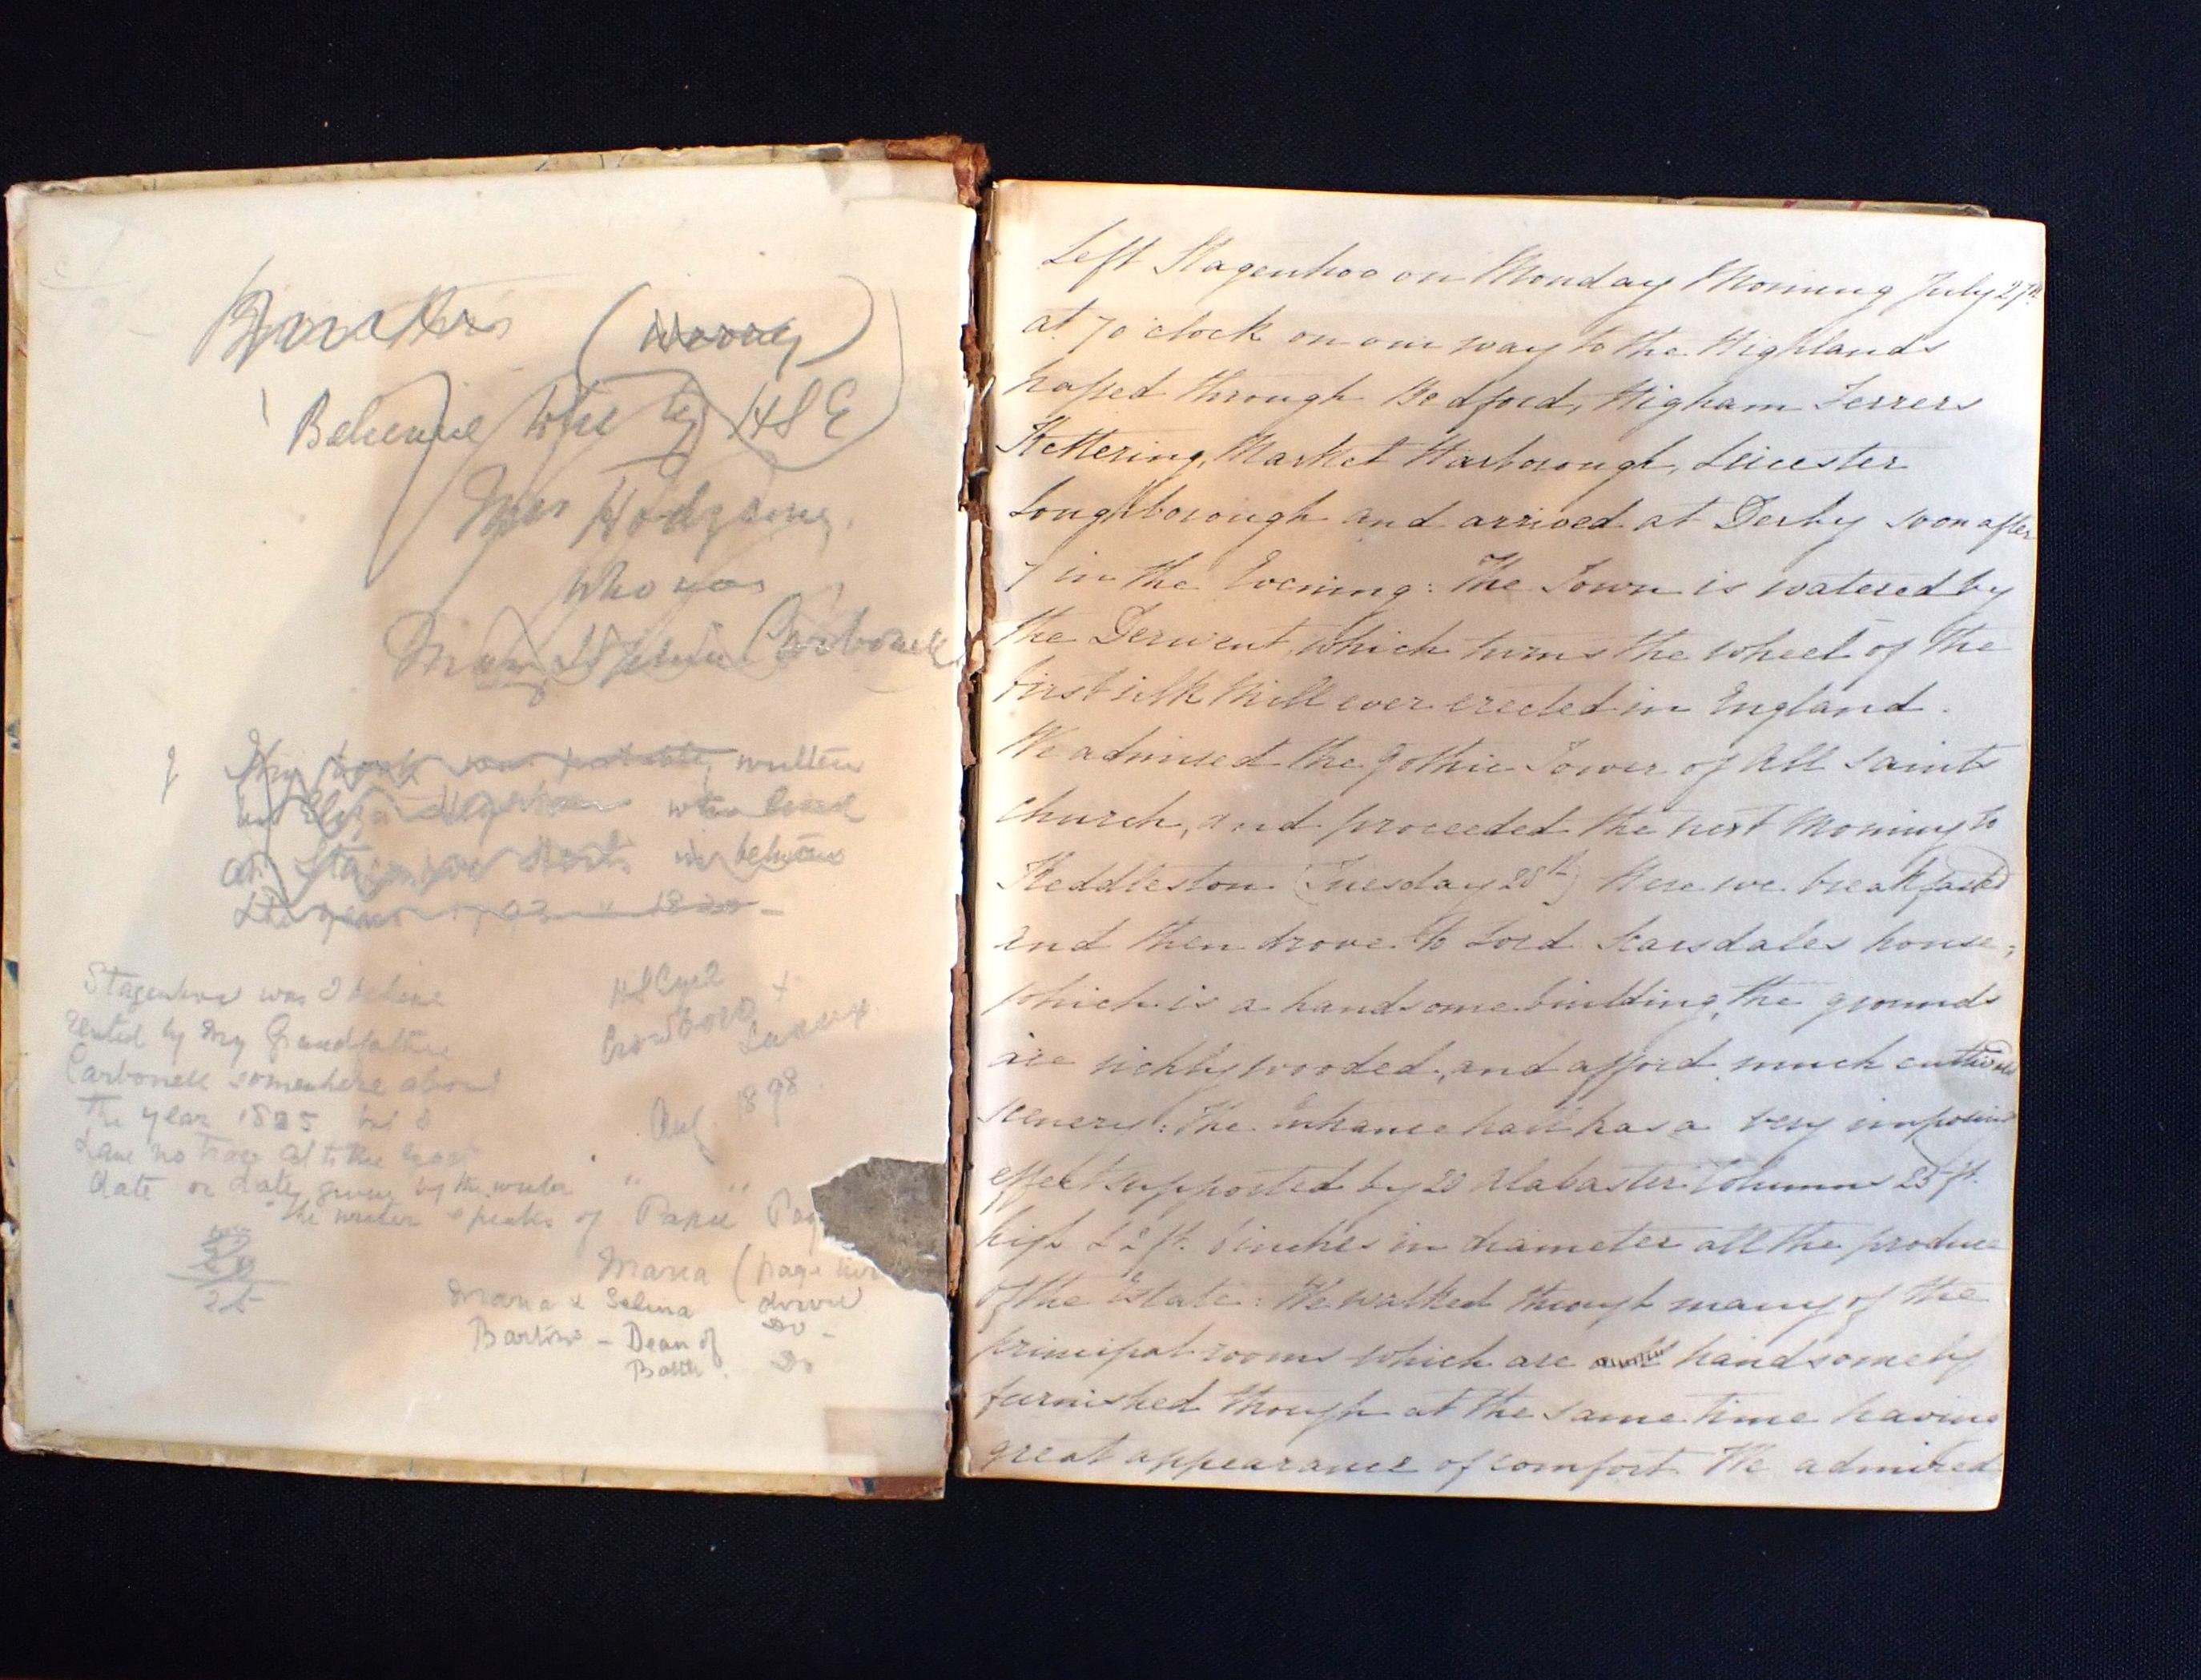 (Wrong)
Believe to be by HSE
Mrs Hodgson
who was
Mary Carbonell
This book was probably written
by Eliza who lived
at Stagenhoe Herts in between
the years 1820 -
Stagenhoe was I believe
rented by My Grandfather
Carbonell somewhere about
the year 1825 but I
have no trace as to the exact
date or date given by the writer " "
the writer speaks of Papa
HS
Crowboro
Sussex
1898
25
Maria (page
Maria & Selina Do -
Dean of Do
Left Stagenhoe on Monday Morning July 27th
at 7 o'clock on our way to the Highlands
passed through Bedford, Higham Ferrers
Kettering, Market Harborough, Leicester
Loughborough and arrived at Derby soon after
7 in the Evening: The Town is watered by
the Derwent, which turns the wheel of the
first silk Mill ever erected in England.
We admired the Gothic Tower of All Saints
church, and proceeded the next Morning to
Keddleston (Tuesday 28th) Here we breakfasted
and then drove to Lord Scarsdales house;
which is a handsome building, the grounds
are richly wooded, and afford much
scenery: The entrance hall has a very imposing
effect supported by 20 Alabaster Columns 25 ft.
high & 2 ft. 6 inches in diameter all the produce
of the Estate: We walked through many of the
principal rooms which are handsomely
furnished though at the same time having
great appearance of comfort. We admired